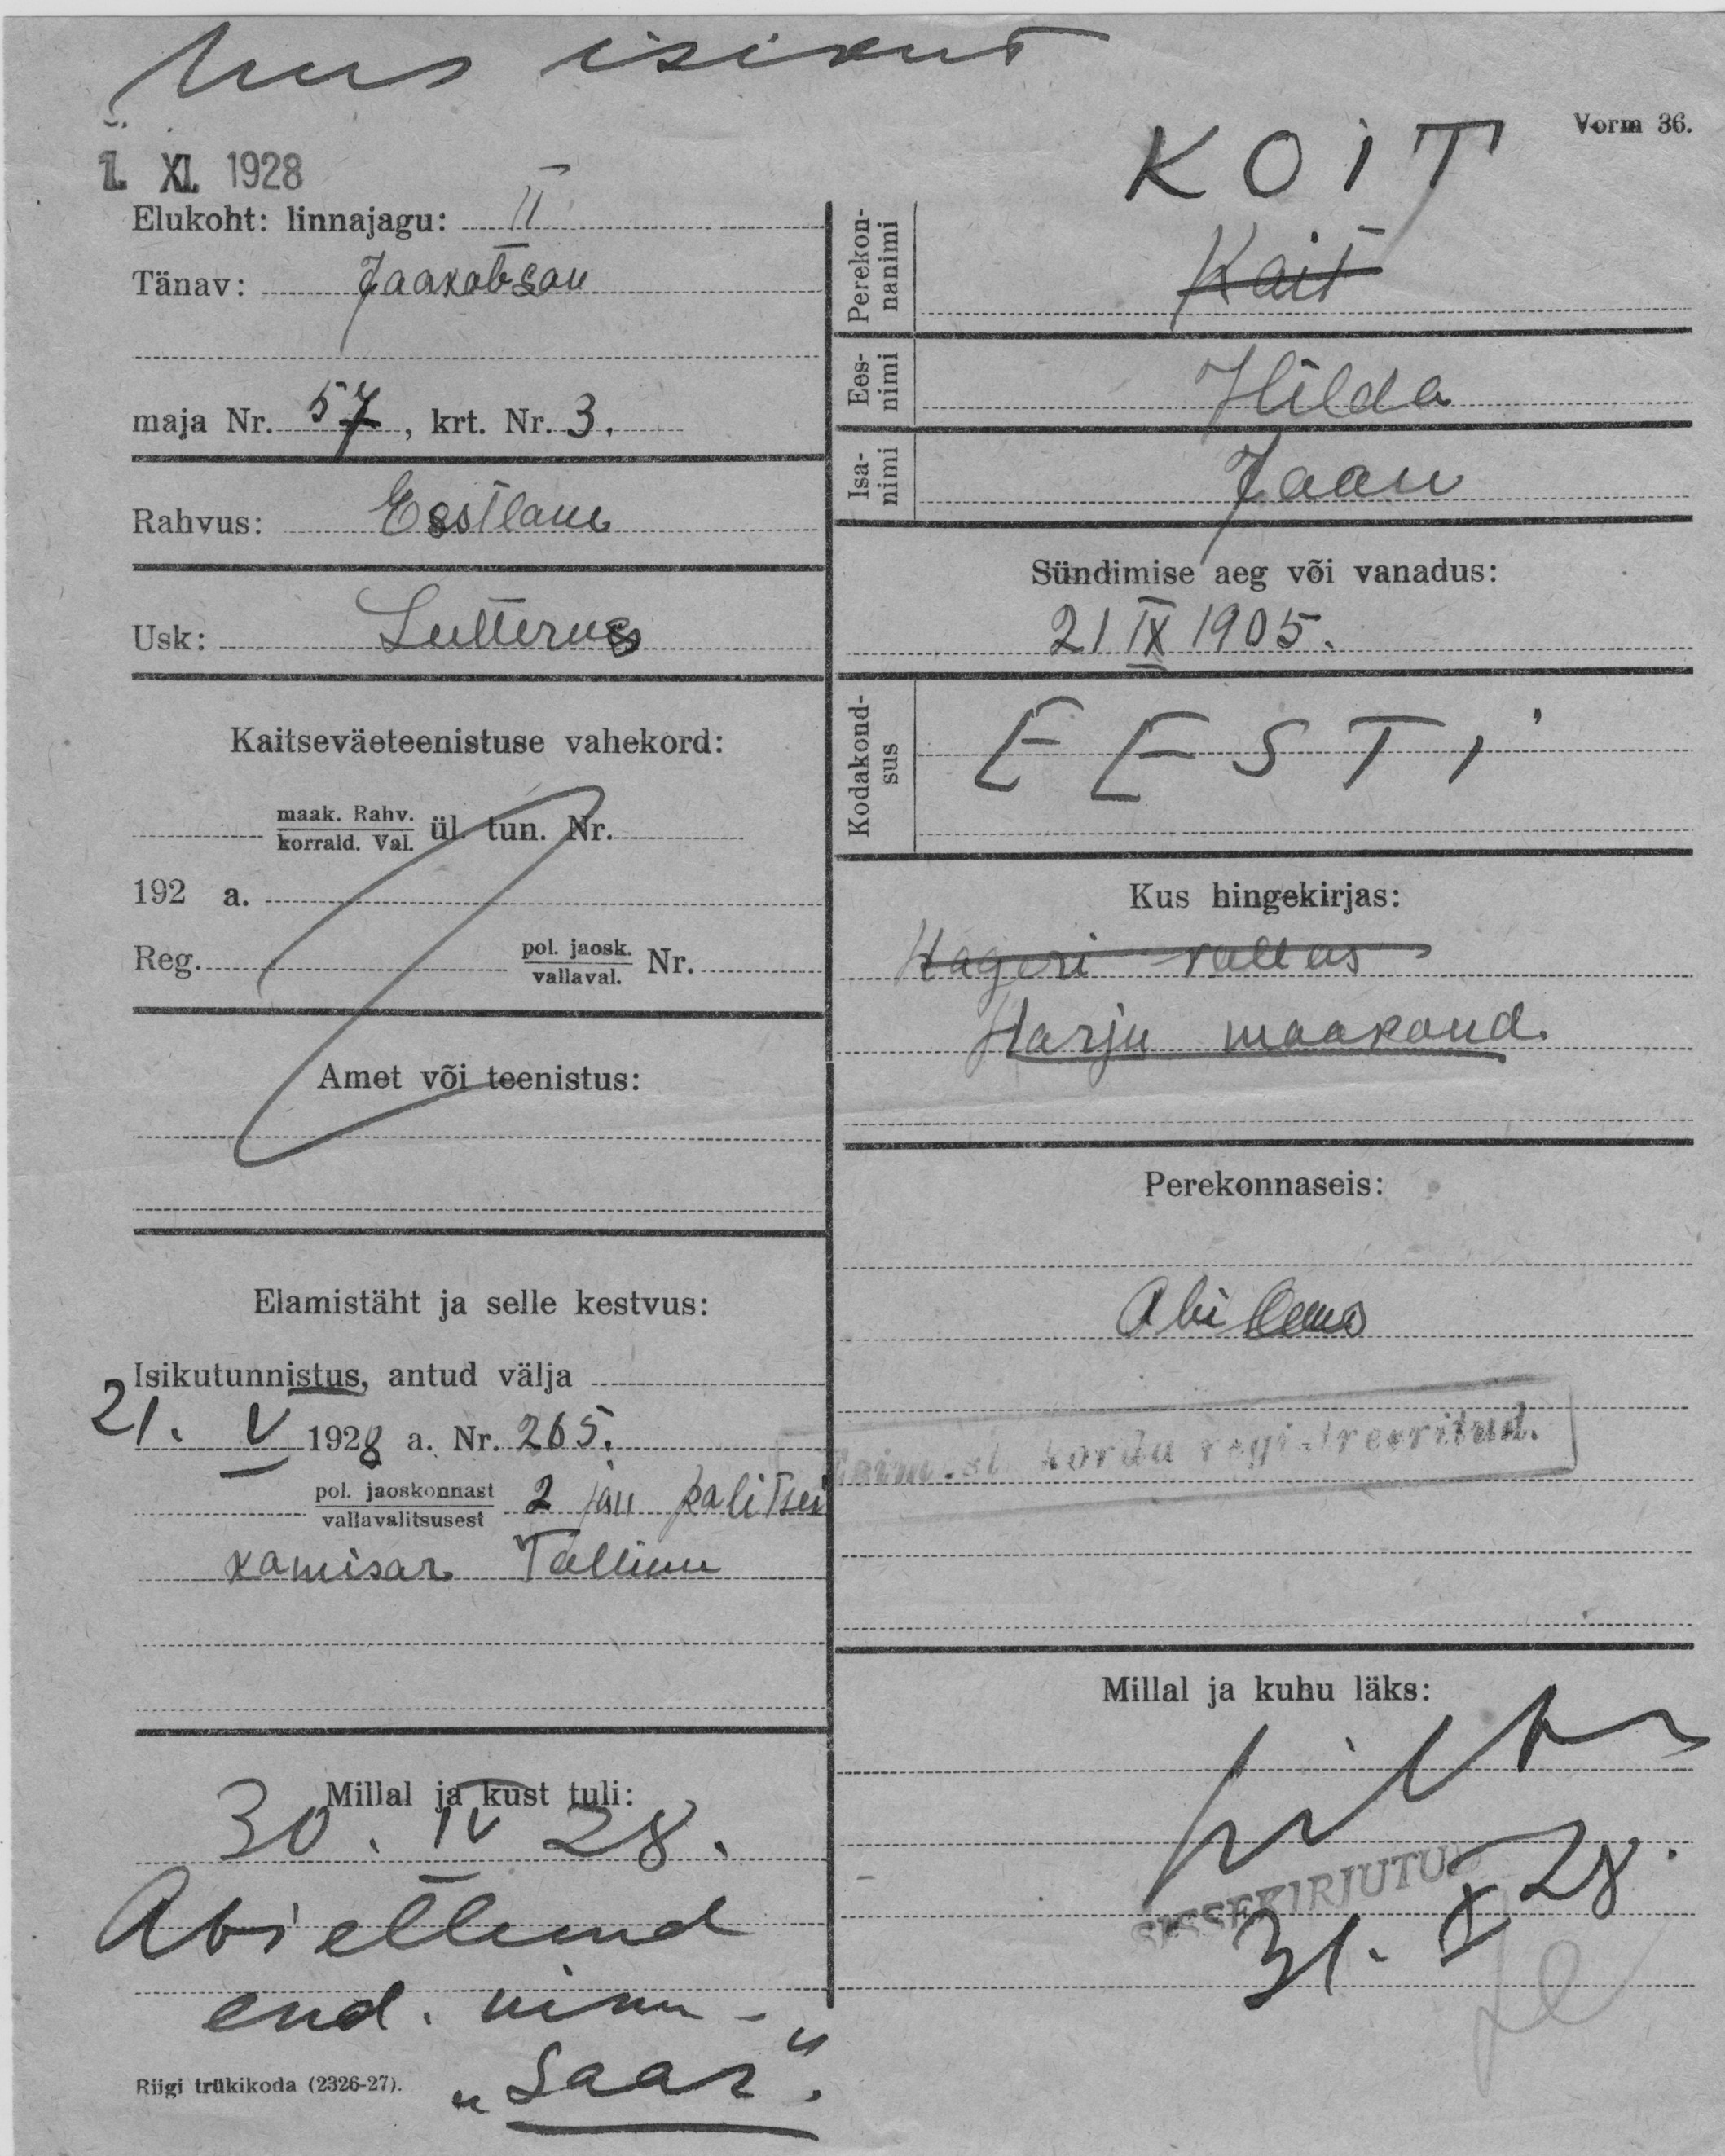 Uus isikut
Vorm 36.
1. XI. 1928
Elukoht: linnajagu: II
Tänav: Jaakobson
maja Nr. 57, krt. Nr. 3.
Rahvus: Eestlane
Usk: Lutterus
Kaitseväeteenistuse vahekord:
maak. Rahv.
korrald. Val. ül. tun. Nr.
192 a.
Reg. pol. jaosk.
vallaval. Nr.
Amet või teenistus:
Elamistäht ja selle kestvus:
Isikutunnistus, antud välja
21. V 1928 a. Nr. 265.
pol. jaoskonnast
vallavalitsusest 2 jau politsei
komisar Tallinn
Millal ja kust tuli:
30. IV 28.
Abiellund
end. nimi -
„Saar".
Riigi trükikoda (2326-27).
KOIT
Perekon-
nanimi
Kait
Ees-
nimi Hilda
Isa-
nimi Jaan
Sündimise aeg või vanadus:
21 IX 1905.
Kodakond-
sus EESTI
Kus hingekirjas:
Hageri vallas
Harju maakond.
Perekonnaseis:
Abielus
Esimest korda registreeritud.
Millal ja kuhu läks:
SISSEKIRJUTUD
31. X 28.